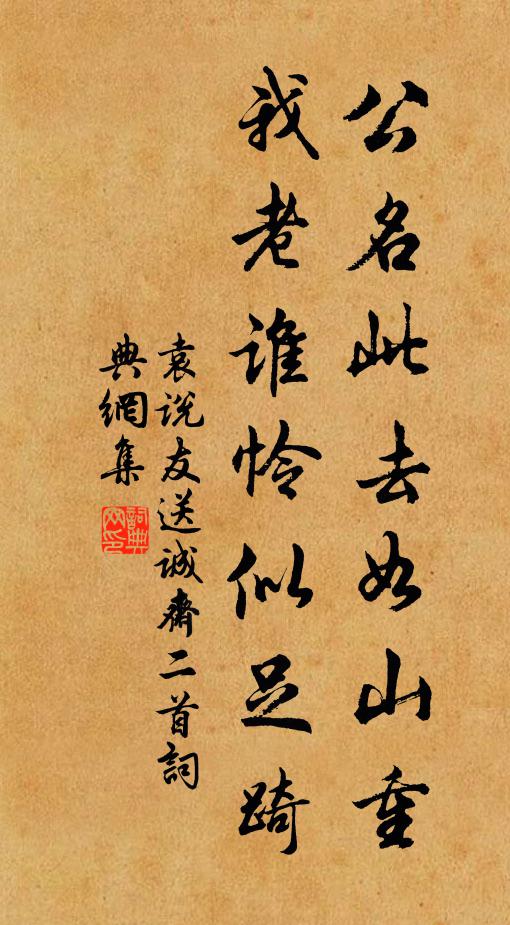 公名此去如山重
我老谁怜似足踦
袁说友送诚斋二首詞
典網集
詞典网印